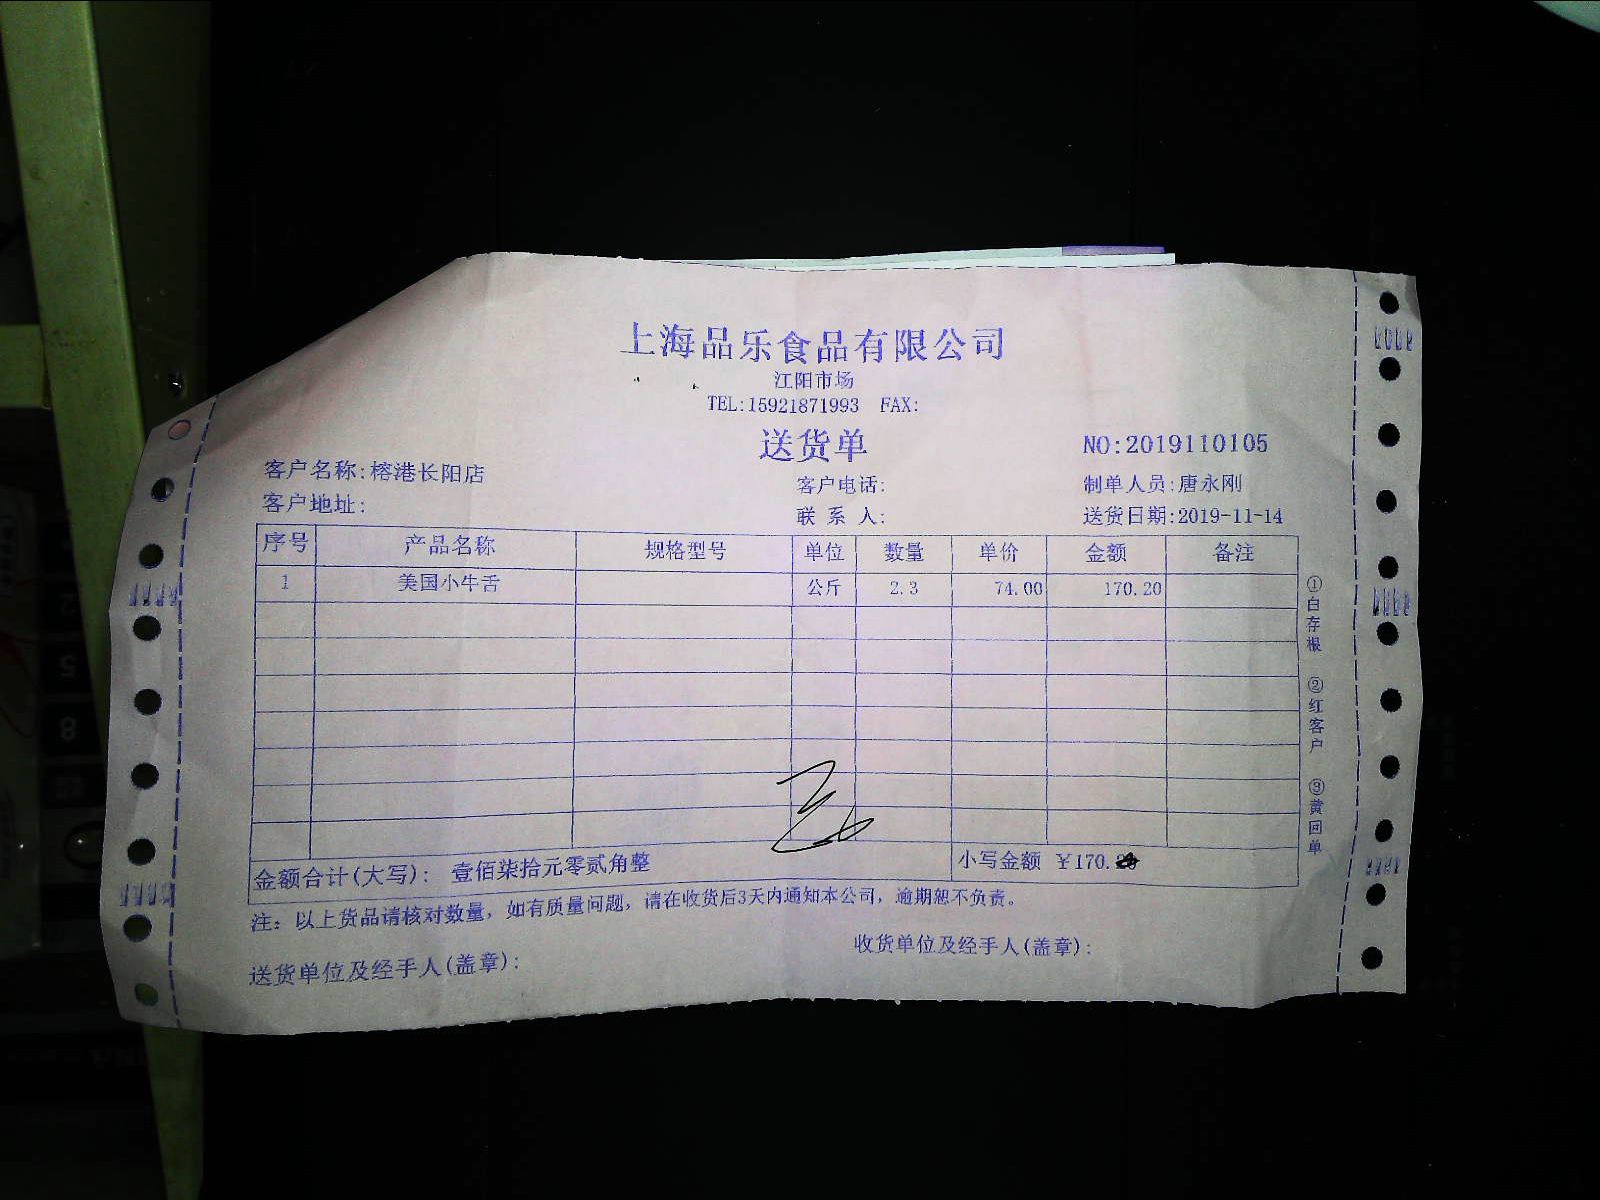 上海品乐食品有限公司
江阳市场
TEL:15921871993 FAX:
送货单
NO:2019110105
客户名称:榕港长阳店
客户电话:
制单人员:唐永刚
客户地址:
联 系 人:
送货日期:2019-11-14
序号 产品名称 规格型号 单位 数量 单价 金额 备注
1 美国小牛舌 公斤 2.3 74.00 170.20
金额合计(大写): 壹佰柒拾元零贰角整 小写金额 ¥170.
注: 以上货品请核对数量, 如有质量问题, 请在收货后3天内通知本公司, 逾期恕不负责。
送货单位及经手人(盖章):
收货单位及经手人(盖章):
①白存根 ②红客户 ③黄回单
5
8